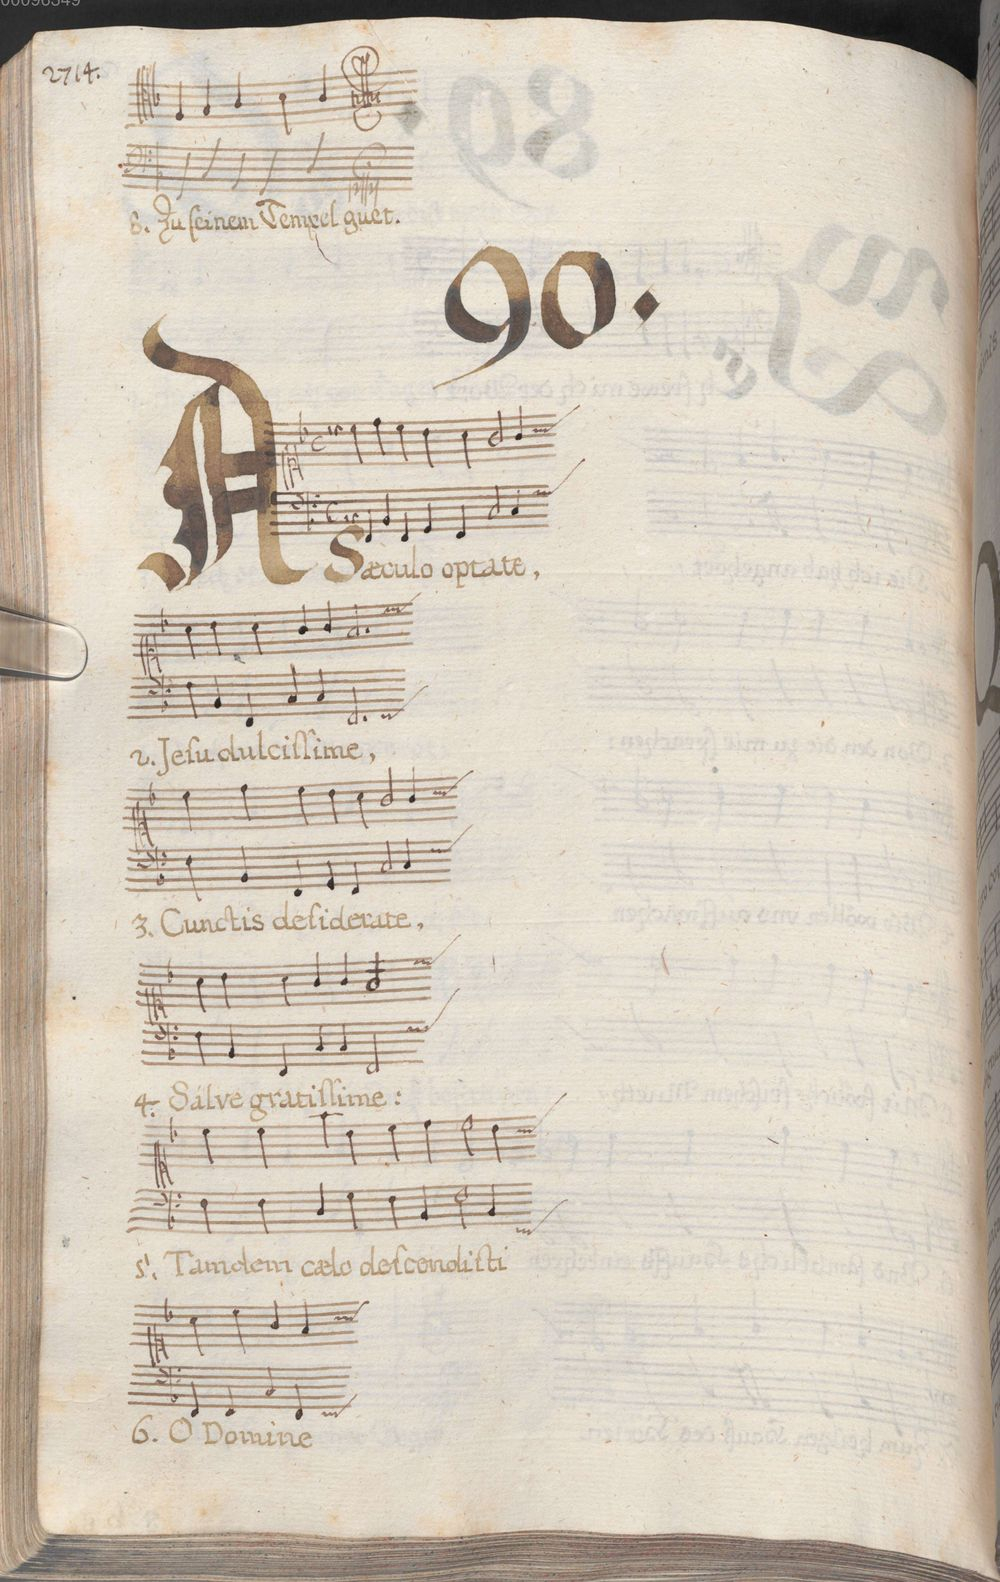 00096349
2714.
8. Zu seinem Tempel guet.
90.
A Sæculo optate,
2. Jesu dulcissime,
3. Cunctis desiderate,
4. Salve gratissime:
5. Tamdem cælo descendisti
6. O Domine